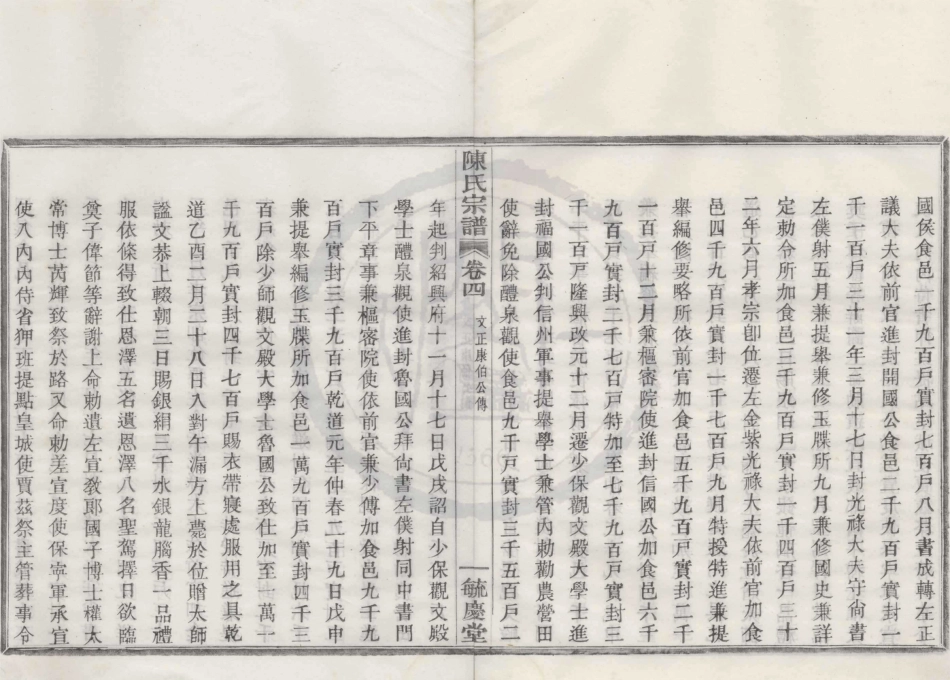 國侯食邑一千九百戶實封七百戶八月書成轉左正
議大夫依前官進封開國公食邑二千九百戶實封一
千一百戶三十一年三月十七日封光祿大夫守尙書
左僕射五月兼提舉兼修玉牒所九月兼修國史兼詳
定勅令所加食邑三千九百戶實封一千四百戶三十
二年六月孝宗卽位遷左金紫光祿大夫依前官加食
邑四千九百戶實封一千七百戶九月特授特進兼提
舉編修要略所依前官加食邑五千九百戶實封二千
一百戶十二月兼樞密院使進封信國公加食邑六千
九百戶實封二千七百戶特加至七千九百戶實封三
千一百戶隆興改元十二月遷少保觀文殿大學士進
封福國公判信州軍事提舉學士兼管內勅勸農營田
使辭免除醴泉觀使食邑九千戶實封三千五百戶二
陳氏宗譜 卷四 文正康伯公傳 一 毓慶堂
年起判紹興府十一月十七日戊戌詔自少保觀文殿
學士醴泉觀使進封魯國公拜尙書左僕射同中書門
下平章事兼樞密院使依前官兼少傅加食邑九千九
百戶實封三千九百戶乾道元年仲春二十九日戊申
兼提舉編修玉牒所加食邑一萬九百戶實封四千三
百戶除少師觀文殿大學士魯國公致仕加至一萬一
千九百戶實封四千七百戶賜衣帶寢處服用之具乾
道乙酉二月二十八日入對午漏方上薨於位贈太師
謚文恭上輟朝三日賜銀絹三千水銀龍腦香一品禮
服依條得致仕恩澤五名遺恩澤八名聖駕擇日欲臨
奠子偉節等辭謝上命勅遺左宣敎郎國子博士權太
常博士芮輝致祭於路又命勅差宣度使保寧軍承宣
使入內內侍省狎班提點皇城使賈茲祭主管葬事今